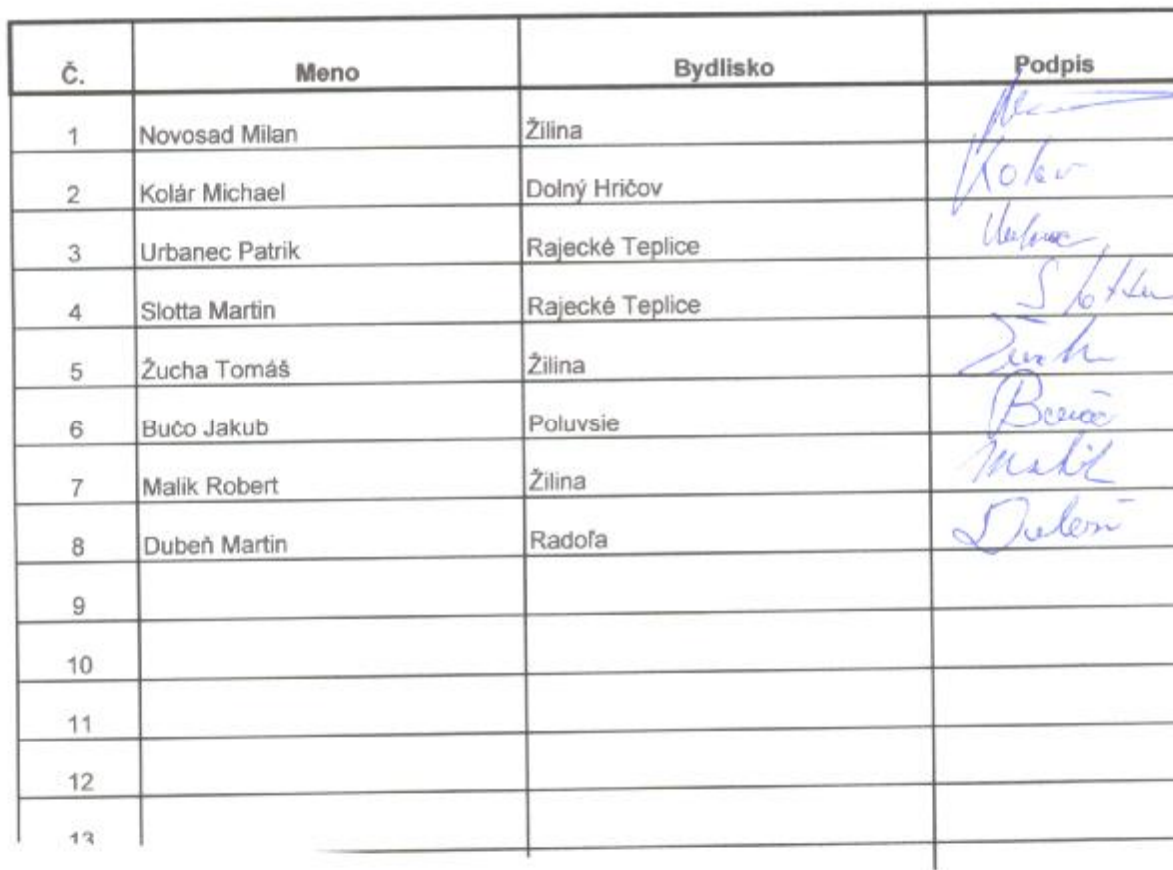 Č. Meno Bydlisko Podpis
1 Novosad Milan Žilina
2 Kolár Michael Dolný Hričov Kolár
3 Urbanec Patrik Rajecké Teplice
4 Slotta Martin Rajecké Teplice Slotta
5 Žucha Tomáš Žilina
6 Bučo Jakub Poluvsie
7 Malik Robert Žilina Malik
8 Dubeň Martin Radoľa Dubeň
9
10
11
12
13